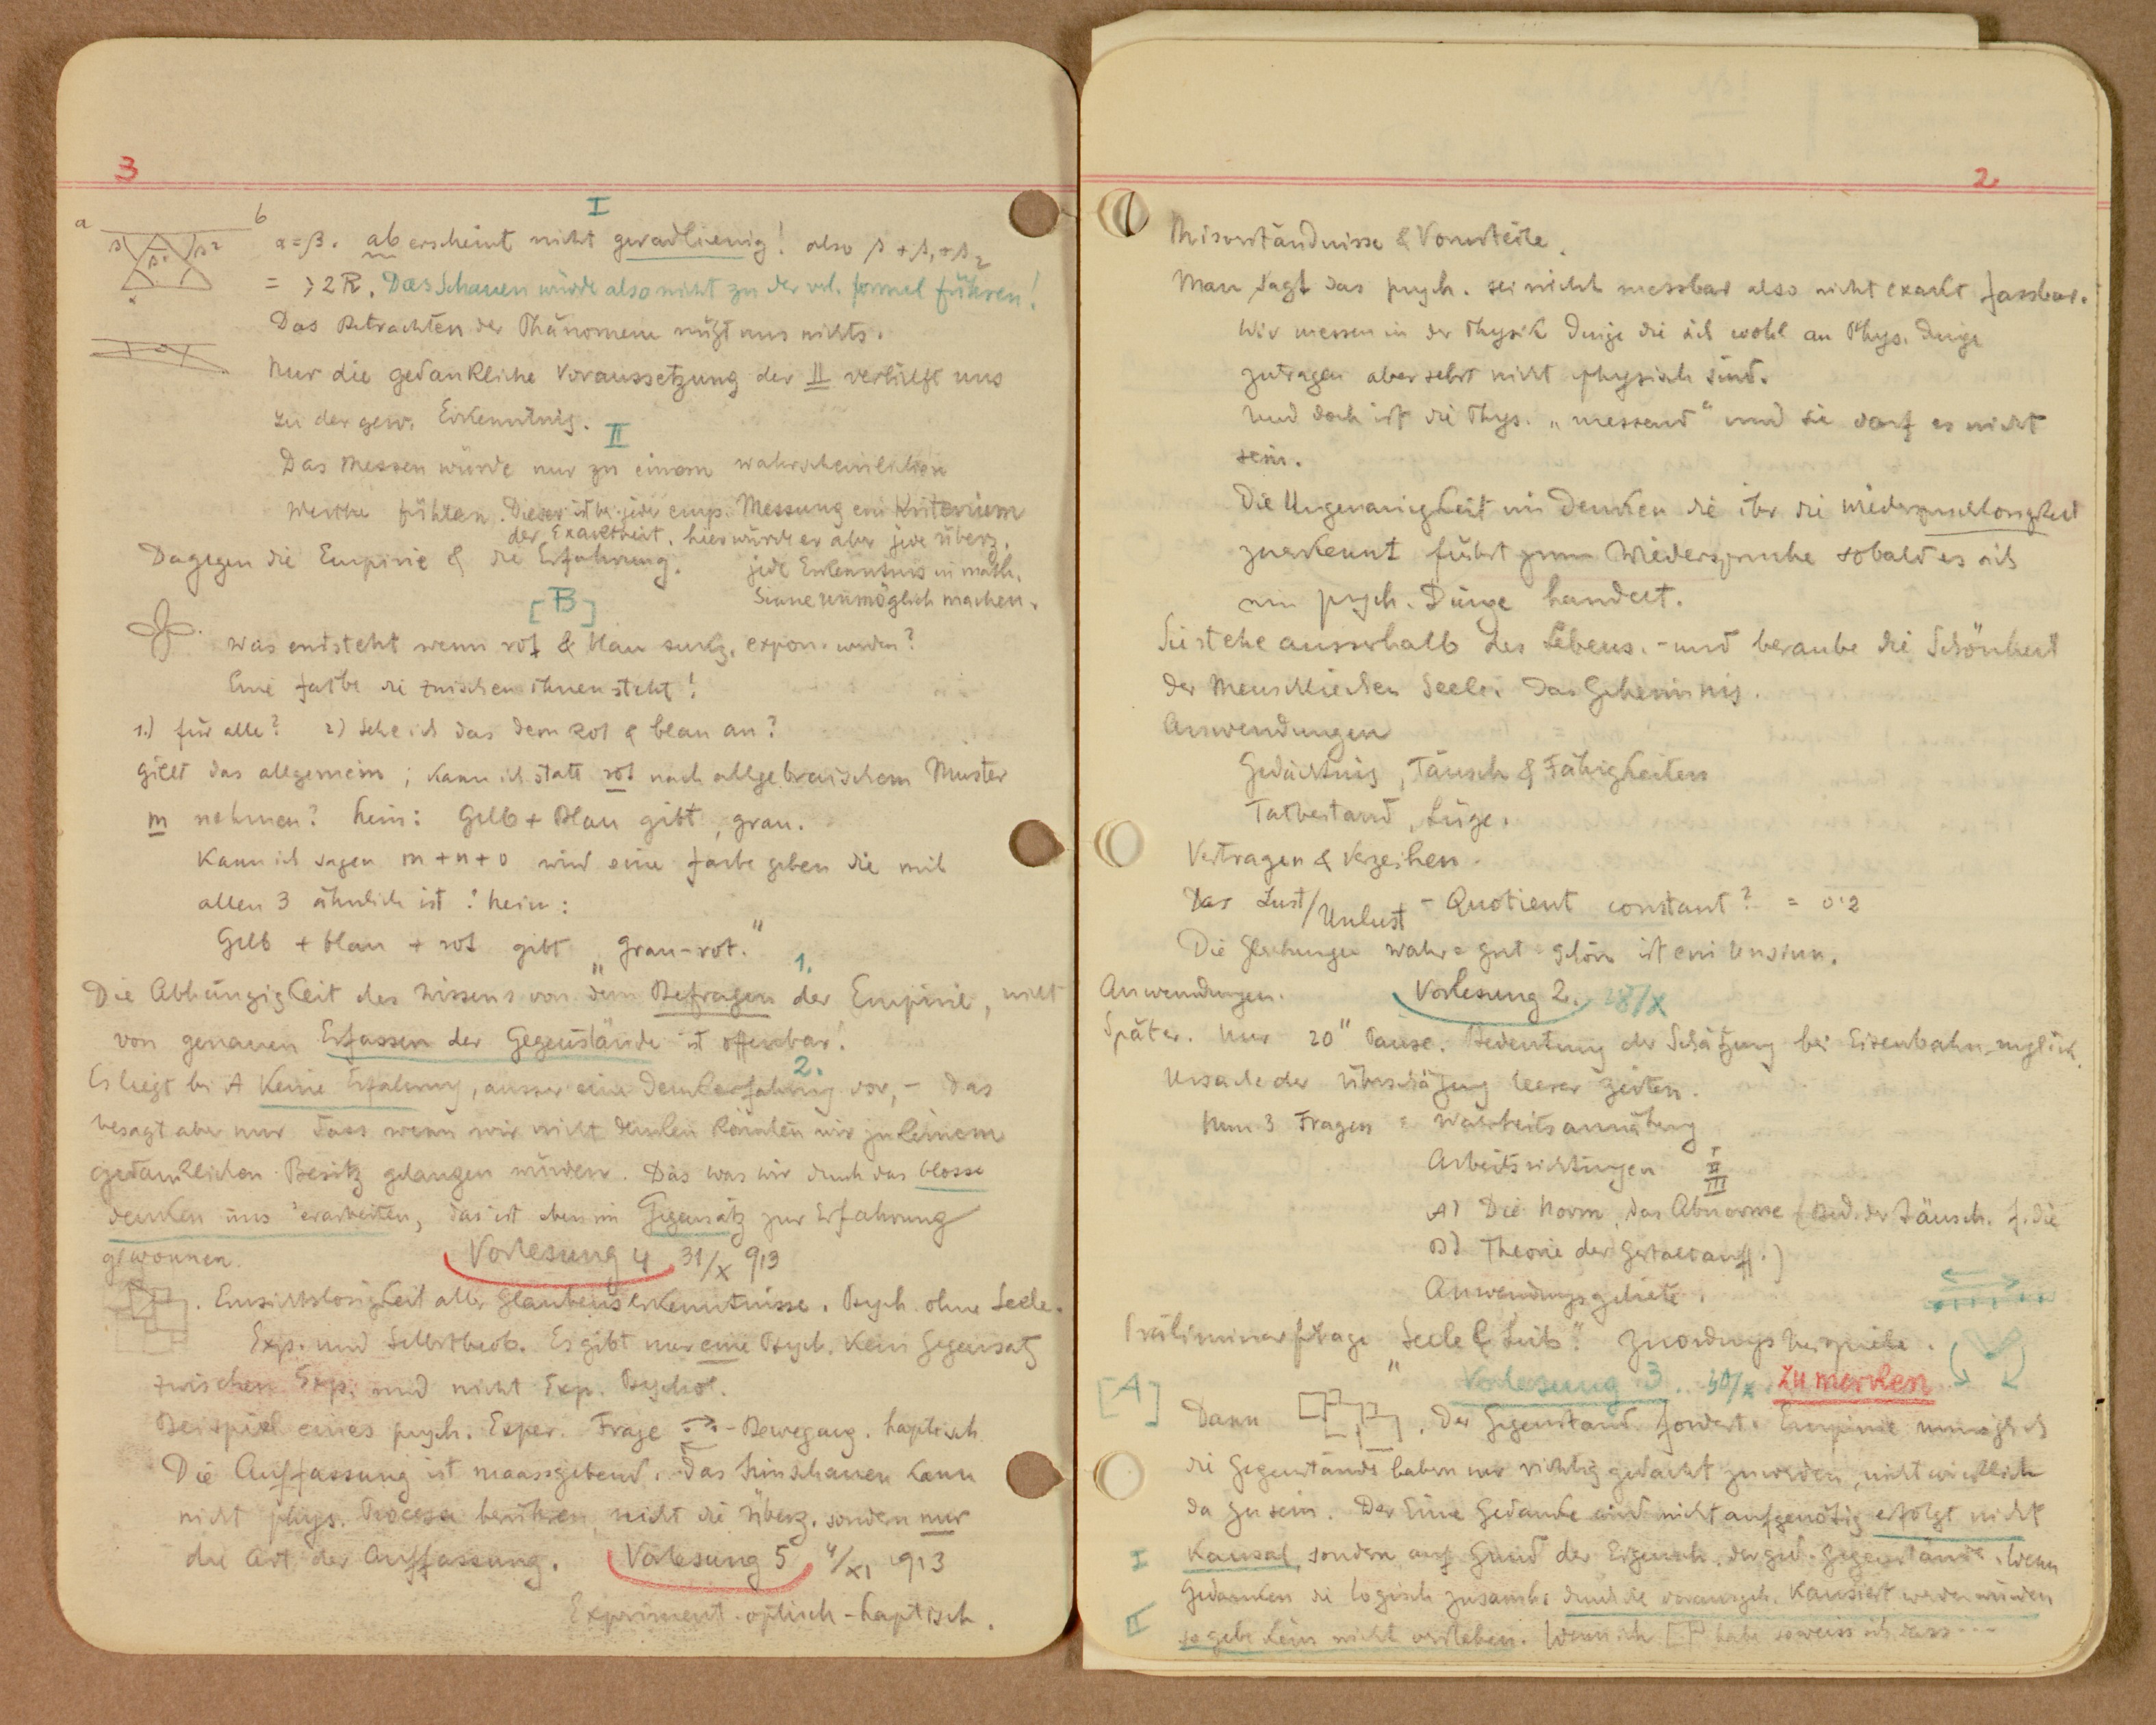 3
I
a
b
α=β. ab erscheint nicht geradlienig! also β + β₁ + β₂
= > 2R. Das Schauen würde also nicht zu der formel führen!
Das Betrachten der Phänomene nützt uns nichts.
Nur die gedankliche Voraussetzung der II verhilft uns
zu der gew. Erkenntnis.
II
Das Messen würde nur zu einem wahrscheinlichen
Werthe führen. Dieser ist bei jeder emp. Messung ein Kriterium
der Exaktheit, hier würde er aber jede überz.
Dagegen die Empirie & die Erfahrung.
jede Erkenntnis in math.
Sinne unmöglich machen.
[B]
Was entsteht wenn rot & blau sukz. expon. werden?
Eine farbe die zwischen ihnen steht!
1.) für alle? 2) Sehe ich das dem Rot & blau an?
Gilt das allgemein; kann ich statt rot nach allgebraischem Muster
m nehmen? Nein: Gelb + Blau gibt, grau.
Kann ich sagen m + n + o wird eine farbe geben die mit
allen 3 ähnlich ist: Nein:
Gelb + blau + rot gibt „grau-rot."
1.
Die Abhängigkeit des Wissens von dem Befragen der Empirie, nicht
von genauen Erfassen der Gegenstände ist offenbar!
2.
Es liegt bei A Keine Erfahrung, ausser eine Denkerfahrung vor, - das
besagt aber nur dass wenn wir nicht denken könnten wir zu keinem
gedanklichen Besitz gelangen würden. Das was wir durch das blosse
denken uns erarbeiten, das ist eben im Gegensatz zur Erfahrung
gewonnen.
Vorlesung 4 31/X 913
. Einsichtslosigkeit aller Glaubenserkenntnisse. Psych. ohne Seele.
Exp. und Selbstbeob. Es gibt nur eine Psych. Kein Gegensatz
zwischen Exp. und nicht Exp. Psychol.
Beispiel eines psych. Exper. Frage - Bewegung. haptisch
Die Auffassung ist maassgebend. Das hinschauen kann
nicht phys. Processe berühren, nicht die überz. sondern nur
die Art der Auffassung. Vorlesung 5 4/XI 913
Experiment. optisch-haptisch.
2
Misverständnisse & Vorurteile.
Man sagt das psych. sei nicht messbar also nicht exakt fassbar.
Wir messen in der Physik Dinge die sich wohl an Phys. Dinge
zutragen aber selbst nicht physisch sind.
Und doch ist die Phys. „messend" und sie darf es nicht
sein.
Die Ungenauigkeit im Denken die ihr die
zuerkennt führt zum Wiederspruche sobald es sich
um psych. Dinge handelt.
Sie stehe ausserhalb des Lebens. - und beraube die Schönheit
der Menschlichen Seele. Das Geheimnis.
Anwendungen
Gedächtnis, Täusch & Fähigkeiten
Tatbestand, Lüge.
Vertragen & Verzeihen.
Das Lust/Unlust - Quotient constant? = 0.2
Die Gleichungen wahr = gut = schön ist ein Unsinn.
Anwendungen. Vorlesung 2. 28/X
Später. Nur 20" Pause. Bedeutung der Schätzung bei Eisenbahn-unglück.
Ursache der Überschätzung leerer Zeiten.
Nun 3 Fragen: Wahrheitsannäherung I
Arbeitsrichtungen II
III
A) Die Norm, das Abnorme (Bed. der Täusch. f. die
B) Theorie der Gestaltauff.)
Anwendungsgebiete.
Präliminarfrage „Seele & Leib". Zuordnungsbeispiele.
Vorlesung 3. 30/X. Zu merken
[A]
Dann . Der Gegenstand fordert. Empirie unmöglich
die Gegenstände haben nur richtig gedacht zu werden, nicht wirklich
da zu sein. Der Eine Gedanke wird nicht aufgenötig erfolgt nicht
I
Kausal, sondern auf Grund der Eigensch. der ged. Gegenstände. Wenn
Gedanken die logisch zusamh. durch die vorausgeh. kausiert werden würden
II
so gebe kein nicht verstehen. Wenn ich habe so weiss ich dass ...